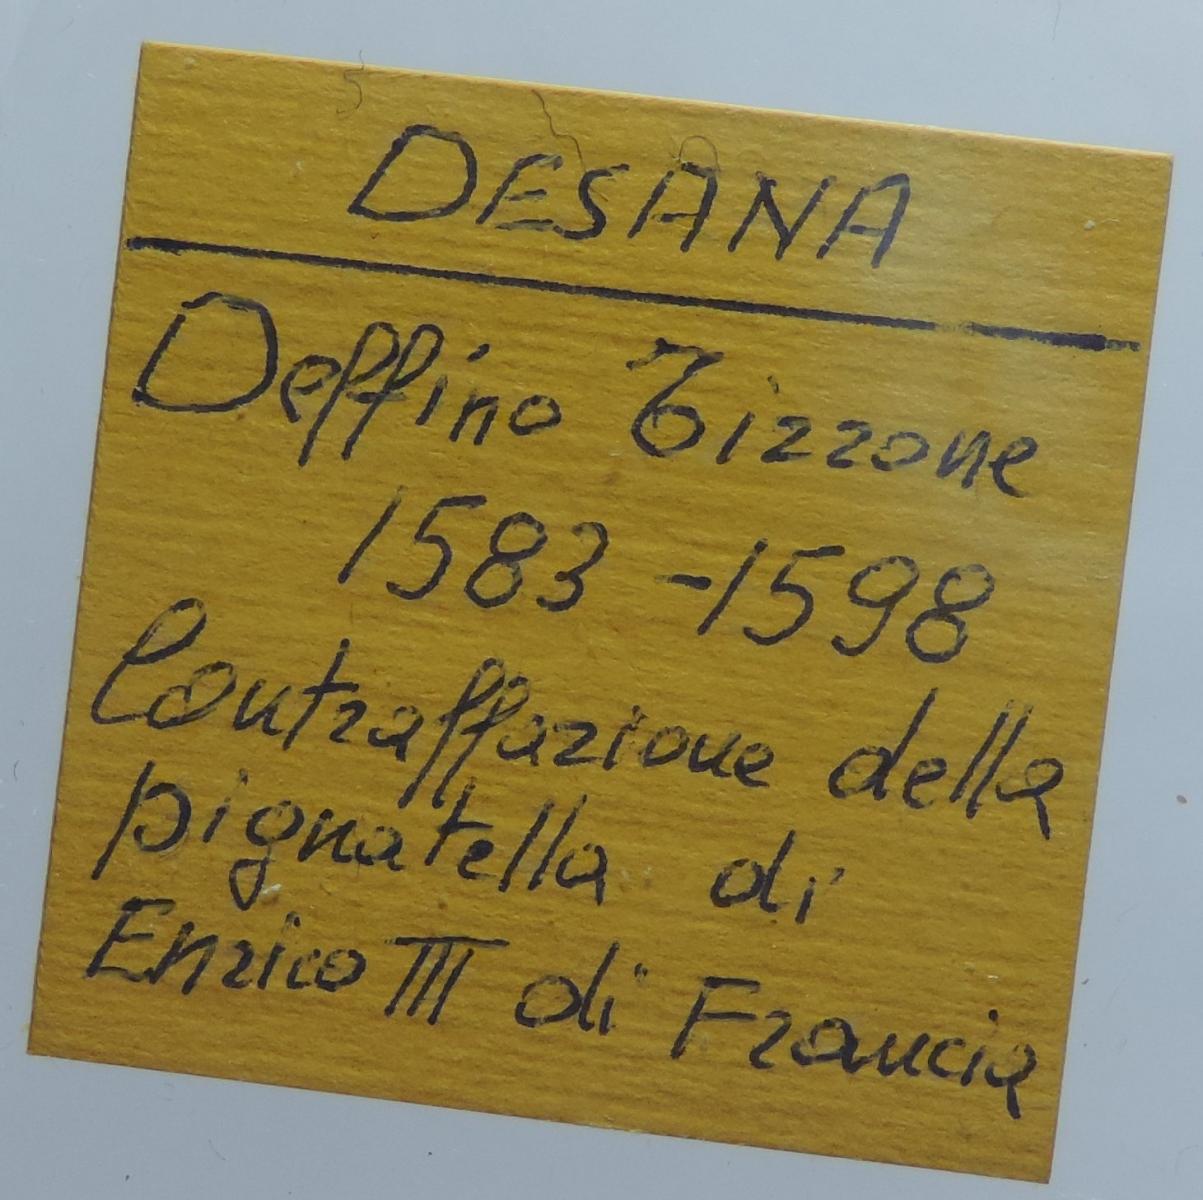 DESANA
Deffino Tizzone
1583 - 1598
Contraffazione della
pignatella di
Enrico III di Francia